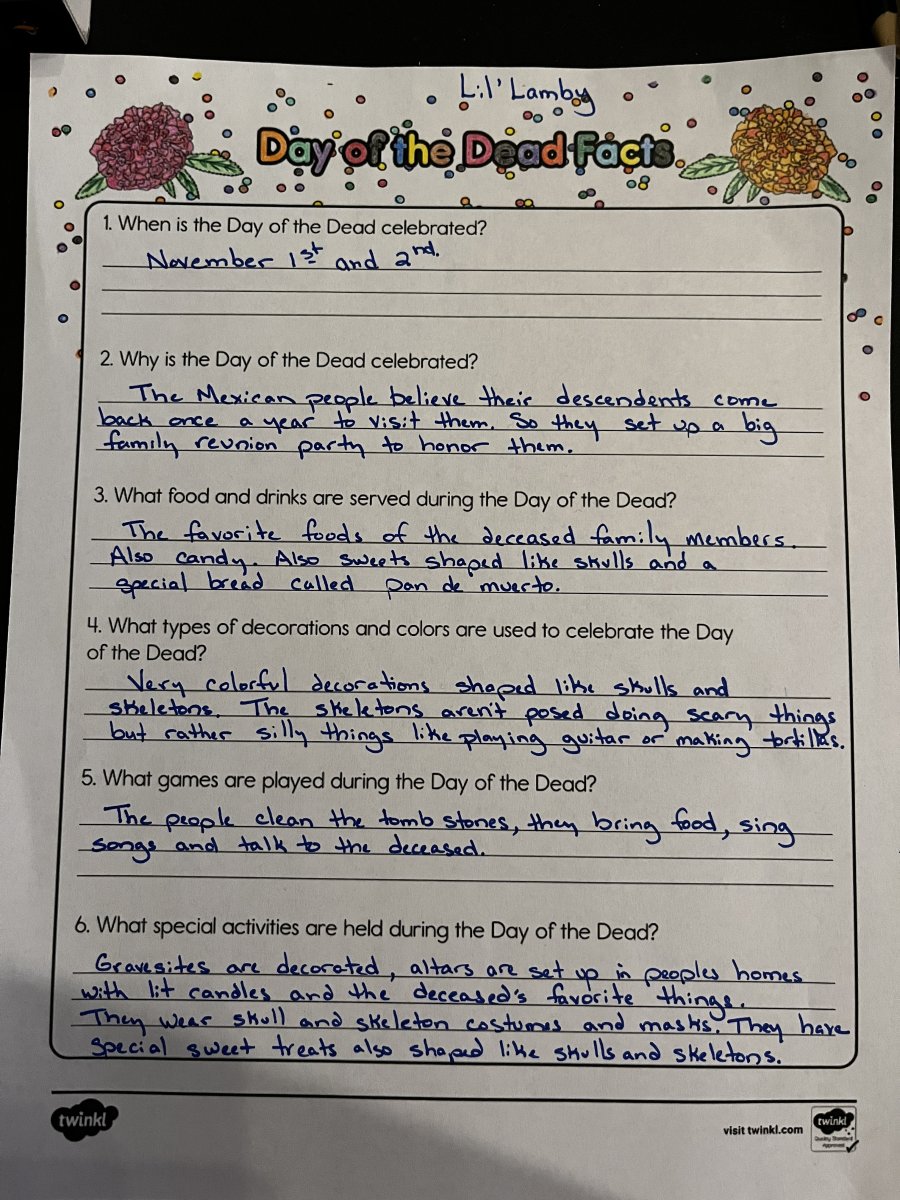 Lil' Lamby
Day of the Dead Facts
1. When is the Day of the Dead celebrated?
November 1st and 2nd.
2. Why is the Day of the Dead celebrated?
The Mexican people believe their descendents come
back once a year to visit them. So they set up a big
family reunion party to honor them.
3. What food and drinks are served during the Day of the Dead?
The favorite foods of the deceased family members.
Also candy. Also sweets shaped like skulls and a
special bread called pan de muerto.
4. What types of decorations and colors are used to celebrate the Day
of the Dead?
Very colorful decorations shaped like skulls and
skeletons. The skeletons aren't posed doing scary things
but rather silly things like playing guitar or making tortillas.
5. What games are played during the Day of the Dead?
The people clean the tomb stones, they bring food, sing
songs and talk to the deceased.
6. What special activities are held during the Day of the Dead?
Gravesites are decorated, altars are set up in peoples homes
with lit candles and the deceased's favorite things.
They wear skull and skeleton costumes and masks. They have
special sweet treats also shaped like skulls and skeletons.
twinkl
visit twinkl.com
twinkl
Quality Standard
Approved